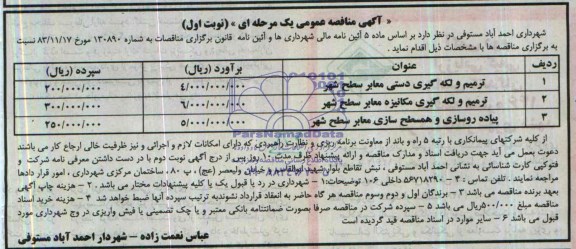 « آگهی مناقصه عمومی یک مرحله ای » (نوبت اول)
شهرداری احمد آباد مستوفی در نظر دارد بر اساس ماده ۵ آئین نامه مالی شهرداری ها و آئین نامه قانون برگزاری مناقصات به شماره ۱۳۰۸۹۰ مورخ ۸۳/۱۱/۱۷ نسبت
به برگزاری مناقصه ها با مشخصات ذیل اقدام نماید .
ردیف عنوان برآورد (ریال) سپرده (ریال)
۱ ترمیم و لکه گیری دستی معابر سطح شهر ۴/۰۰۰/۰۰۰/۰۰۰ ۲۰۰/۰۰۰/۰۰۰
۲ ترمیم و لکه گیری مکانیزه معابر سطح شهر ۶/۰۰۰/۰۰۰/۰۰۰ ۳۰۰/۰۰۰/۰۰۰
۳ پیاده روسازی و همسطح سازی معابر سطح شهر ۵/۰۰۰/۰۰۰/۰۰۰ ۲۵۰/۰۰۰/۰۰۰
ParsNamadData
از کلیه شرکتهای پیمانکاری با رتبه ۵ راه و باند از معاونت برنامه ریزی و نظارت راهبردی که دارای امکانات لازم و اجرائی و نیز ظرفیت خالی ارجاع کار می باشند
دعوت بعمل می آید جهت دریافت اسناد و مدارک مناقصه و ارائه پیشنهاد ظرف مدت ۱۰ روز پس از درج آگهی نوبت دوم با در دست داشتن معرفی نامه شرکت و
فتوکپی کارت شناسائی به نشانی احمد آباد مستوفی ، نبش تقاطع بلوار شهید ابوالقاسمی و خیابان ولیعصر (عج) ، پ ۸۰ ، ساختمان مرکزی شهرداری ، امور قرار دادها
مراجعه نمایند . تلفن تماس : ۴-۵۶۷۱۸۲۹۰ داخلی ۱۰۶ توضیحات:۱- شهرداری در رد یا قبول یک یا کلیه پیشنهادات مختار می باشد . ۲ - هزینه چاپ آگهی
بعهد برنده مناقصه می باشد ۳ - برندگان اول و دوم وسوم مناقصه هر گاه حاضر به انعقاد قرارداد نشوندبه ترتیب سپرده آنها ضبط خواهد شد ۴ - هزینه خرید اسناد
مناقصه مبلغ ۵۰۰/۰۰۰ ریال می باشد ۵ - سپرده شرکت در مناقصه صرفا بصورت ضمانتنامه بانکی معتبر و یا چک تضمینی یا فیش واریزی در وج شهرداری مورد
قبول می باشد ۶ - سایر موارد در اسناد مناقصه قید گردیده است
عباس نعمت زاده – شهردار احمد آباد مستوفی